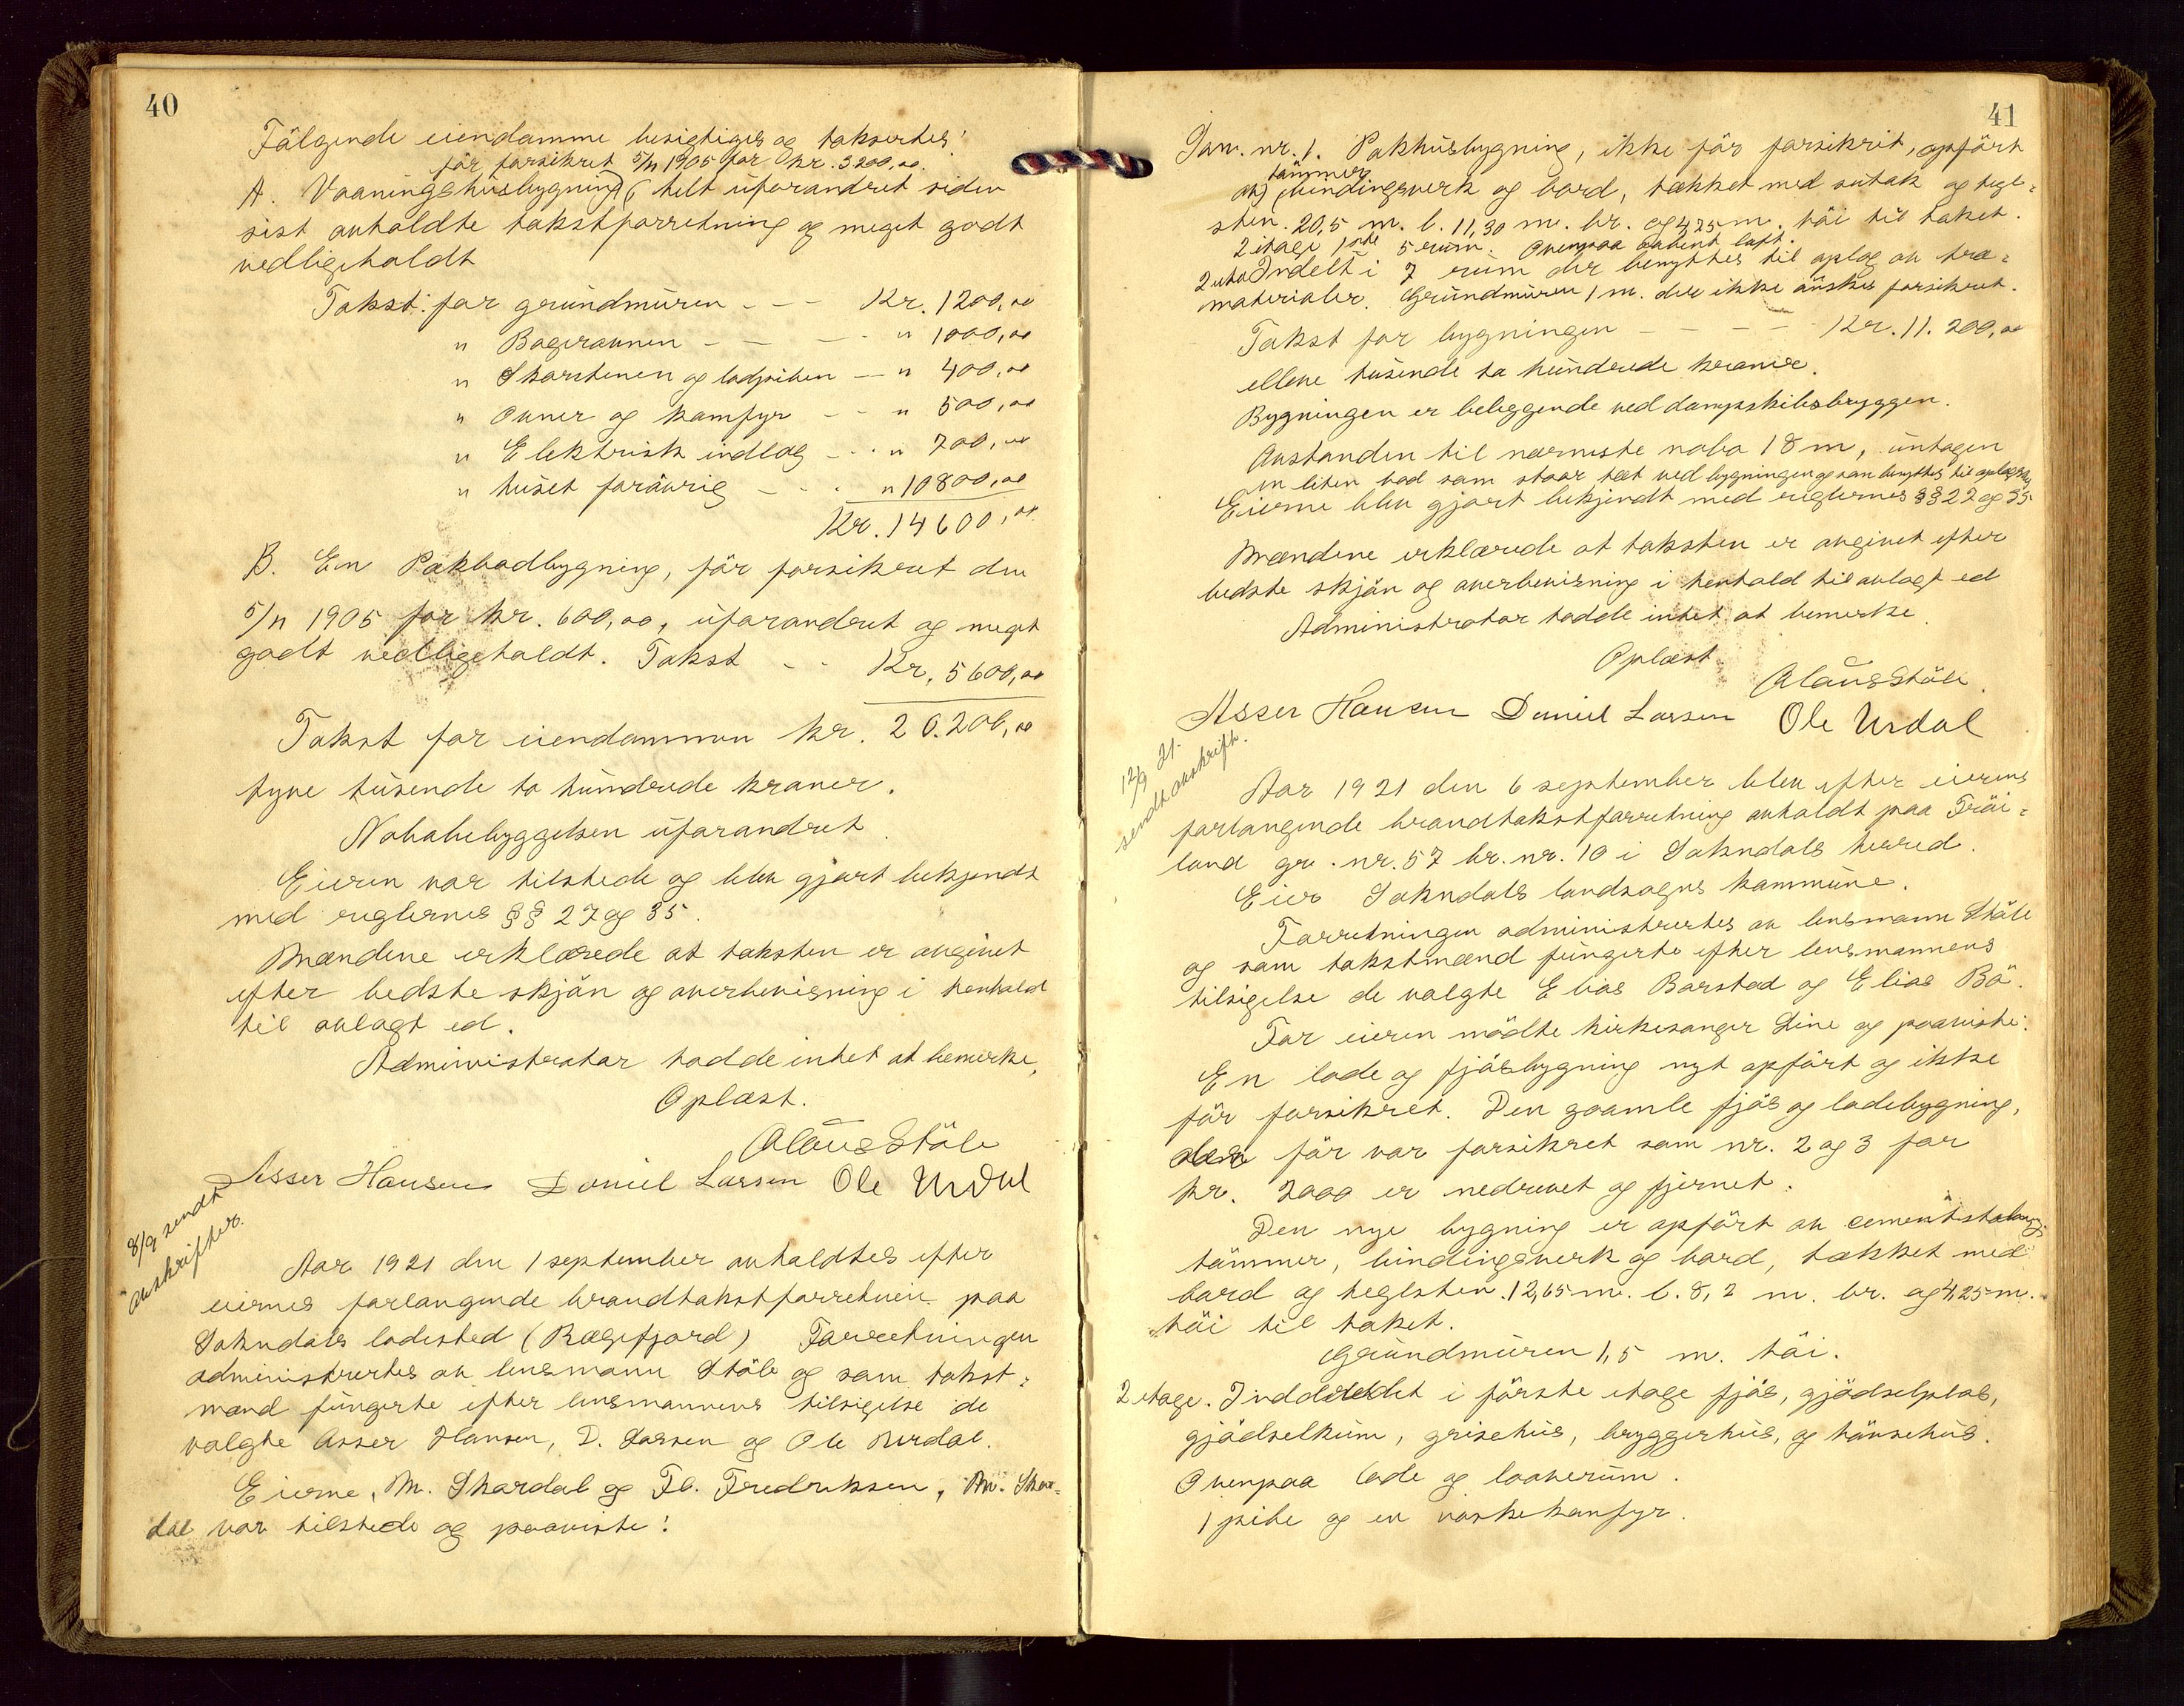 40
Fälgende eiendamme besigtiges og taksertes!
för forsikret 5/11 1905 for kr. 3200,00
A. Vaaningshusbygning, helt uforandret siden
sist avholdte takstforretning og meget godt
vedligeholdt
Takst: for grundmuren - - - Kr. 1200,00
" Bagerovnen - - - - " 1000,00
" Skorstenen og ladpiben - " 400,00
" Ovner og kamfyr - - " 500,00
" Elektrisk indlæg - - - " 700,00
" huset foräuvrig - - - " 10800,00
Kr. 14600,00
B. En Pakbodbygning, för forsikret den
5/11 1905 for kr. 600,00, uforandret og meget
godt vedligeholdt. Takst - - Kr. 5600,00
Takst for eiendommen kr. 20.200,00
tyve tusende to hundrede kroner.
Nabobebyggelsen uforandret.
Eieren var tilstede og blev gjort bekjendt
med reglernes §§ 27 og 35.
Mændene erklærede at taksten er avgivet
efter bedste skjön og overbevisning i henhold
til avlagt ed.
Administrator hadde intet at bemerke,
Oplæst.
Olaus Stöle
Asser Hansen Daniel Larsen Ole Urdal
8/9 sendt
avskrifter.
Aar 1921 den 1 september avholdtes efter
eiernes forlangende brandtakstforretnin paa
Sokndals ladested (Rægefjord) Forretningen
administrertes av lensmann Stöle og som takst:
mænd fungerte efter lensmannens tilsigelse de
valgte Asser Hansen, D. Larsen og Ole Urdal.
Eierne, M. Skardal og Fl. Fredriksen, M. Skar=
dal var tilstede og paaviste:
41
Jaur. nr. 1. Pakhusbygning, ikke för forsikrit, opfört
tömmer
av bindingsverk og bord, tækket med sutak og tegl=
sten. 20,5 m. l. 11,30 m. br. og 4,75 m. höi til taket.
2 etage 1ste 5 rum. Ovenpaa aabent loft.
Indelt i 7 rum der benyttes til oplag av træ=
materialer. Grundmuren 1 m. der ikke önskes forsikret.
Takst for bygningen - - - - Kr. 11.200,00
elleve tusende to hundrede kroner.
Bygningen er beliggende ved dampskibsbryggen.
Avstanden til nærmeste nabo 18 m, untagen
en liten bod som staar tæt ved bygningen og som benyttes til oplagsrum
Eierne blev gjort bekjendt med reglernes §§ 27 og 35
Mændene erklærede at taksten er avgivet efter
bedste skjön og overbevisning i henhold til avlagt ed
Administrator hadde intet at bemerke.
Oplæst.
Olaus Stöle
Asser Hansen Daniel Larsen Ole Urdal
12/9 21.
sendt avskrift.
Aar 1921 den 6 september blev efter eierens
forlangende brandtakstforretning avholdt paa Tröi=
land gr. nr. 57 br. nr. 10 i Sokndals herred.
Eier Sokndals landsogns kommune.
Forretningen administrertes av lensmann Stöle
og som takstmænd fungerte efter lensmannens
tilsigelse de valgte Elias Barstad og Elias Bö.
For eieren mödte kirkesanger Line og paaviste:
En lade og fjösbygning nyt opfört og ikke
för forsikret. Den gaamle fjös og ladebygning,
der för var forsikret som nr. 2 og 3 for
kr. 2000 er nedrevet og fjernet.
Den nye bygning er opfört av cementstöbning,
tömmer, bindingsverk og bord, tækket med
bord og teglsten. 12,65 m. l. 8,2 m. br. og 4,25 m.
höi til taket.
Grundmuren 1,5 m. höi.
2 etage. Inddeldt i förste etage fjös, gjödselplas,
gjödselkum, grisehus, bryggerhus, og hönsehus.
Ovenpaa lade og laaverum.
1 pibe og en vaskekamfyr.